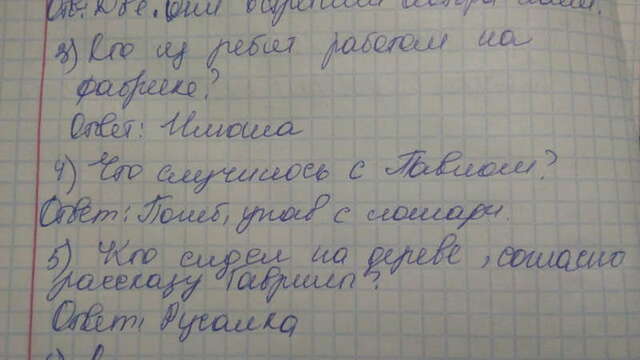 3) Кто из ребят работал на
фабрике?
Ответ: Илюша
4) Что случилось с Павлом?
Ответ: Погиб, упав с лошади.
5) Кто сидел на дереве, согласно
рассказу Гаврилы?
Ответ: Русалка